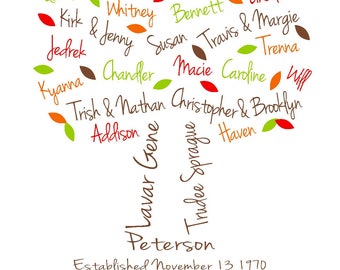 Whitney Bennett
Kirk & Jenny Susan Travis & Margie
Jedrek Trenna
Kyanna Chandler Macie Caroline Will
Trish & Nathan Christopher & Brooklyn
Addison Haven
Lavar Gene
Trudee Sprague
Peterson
Established November 13 1970